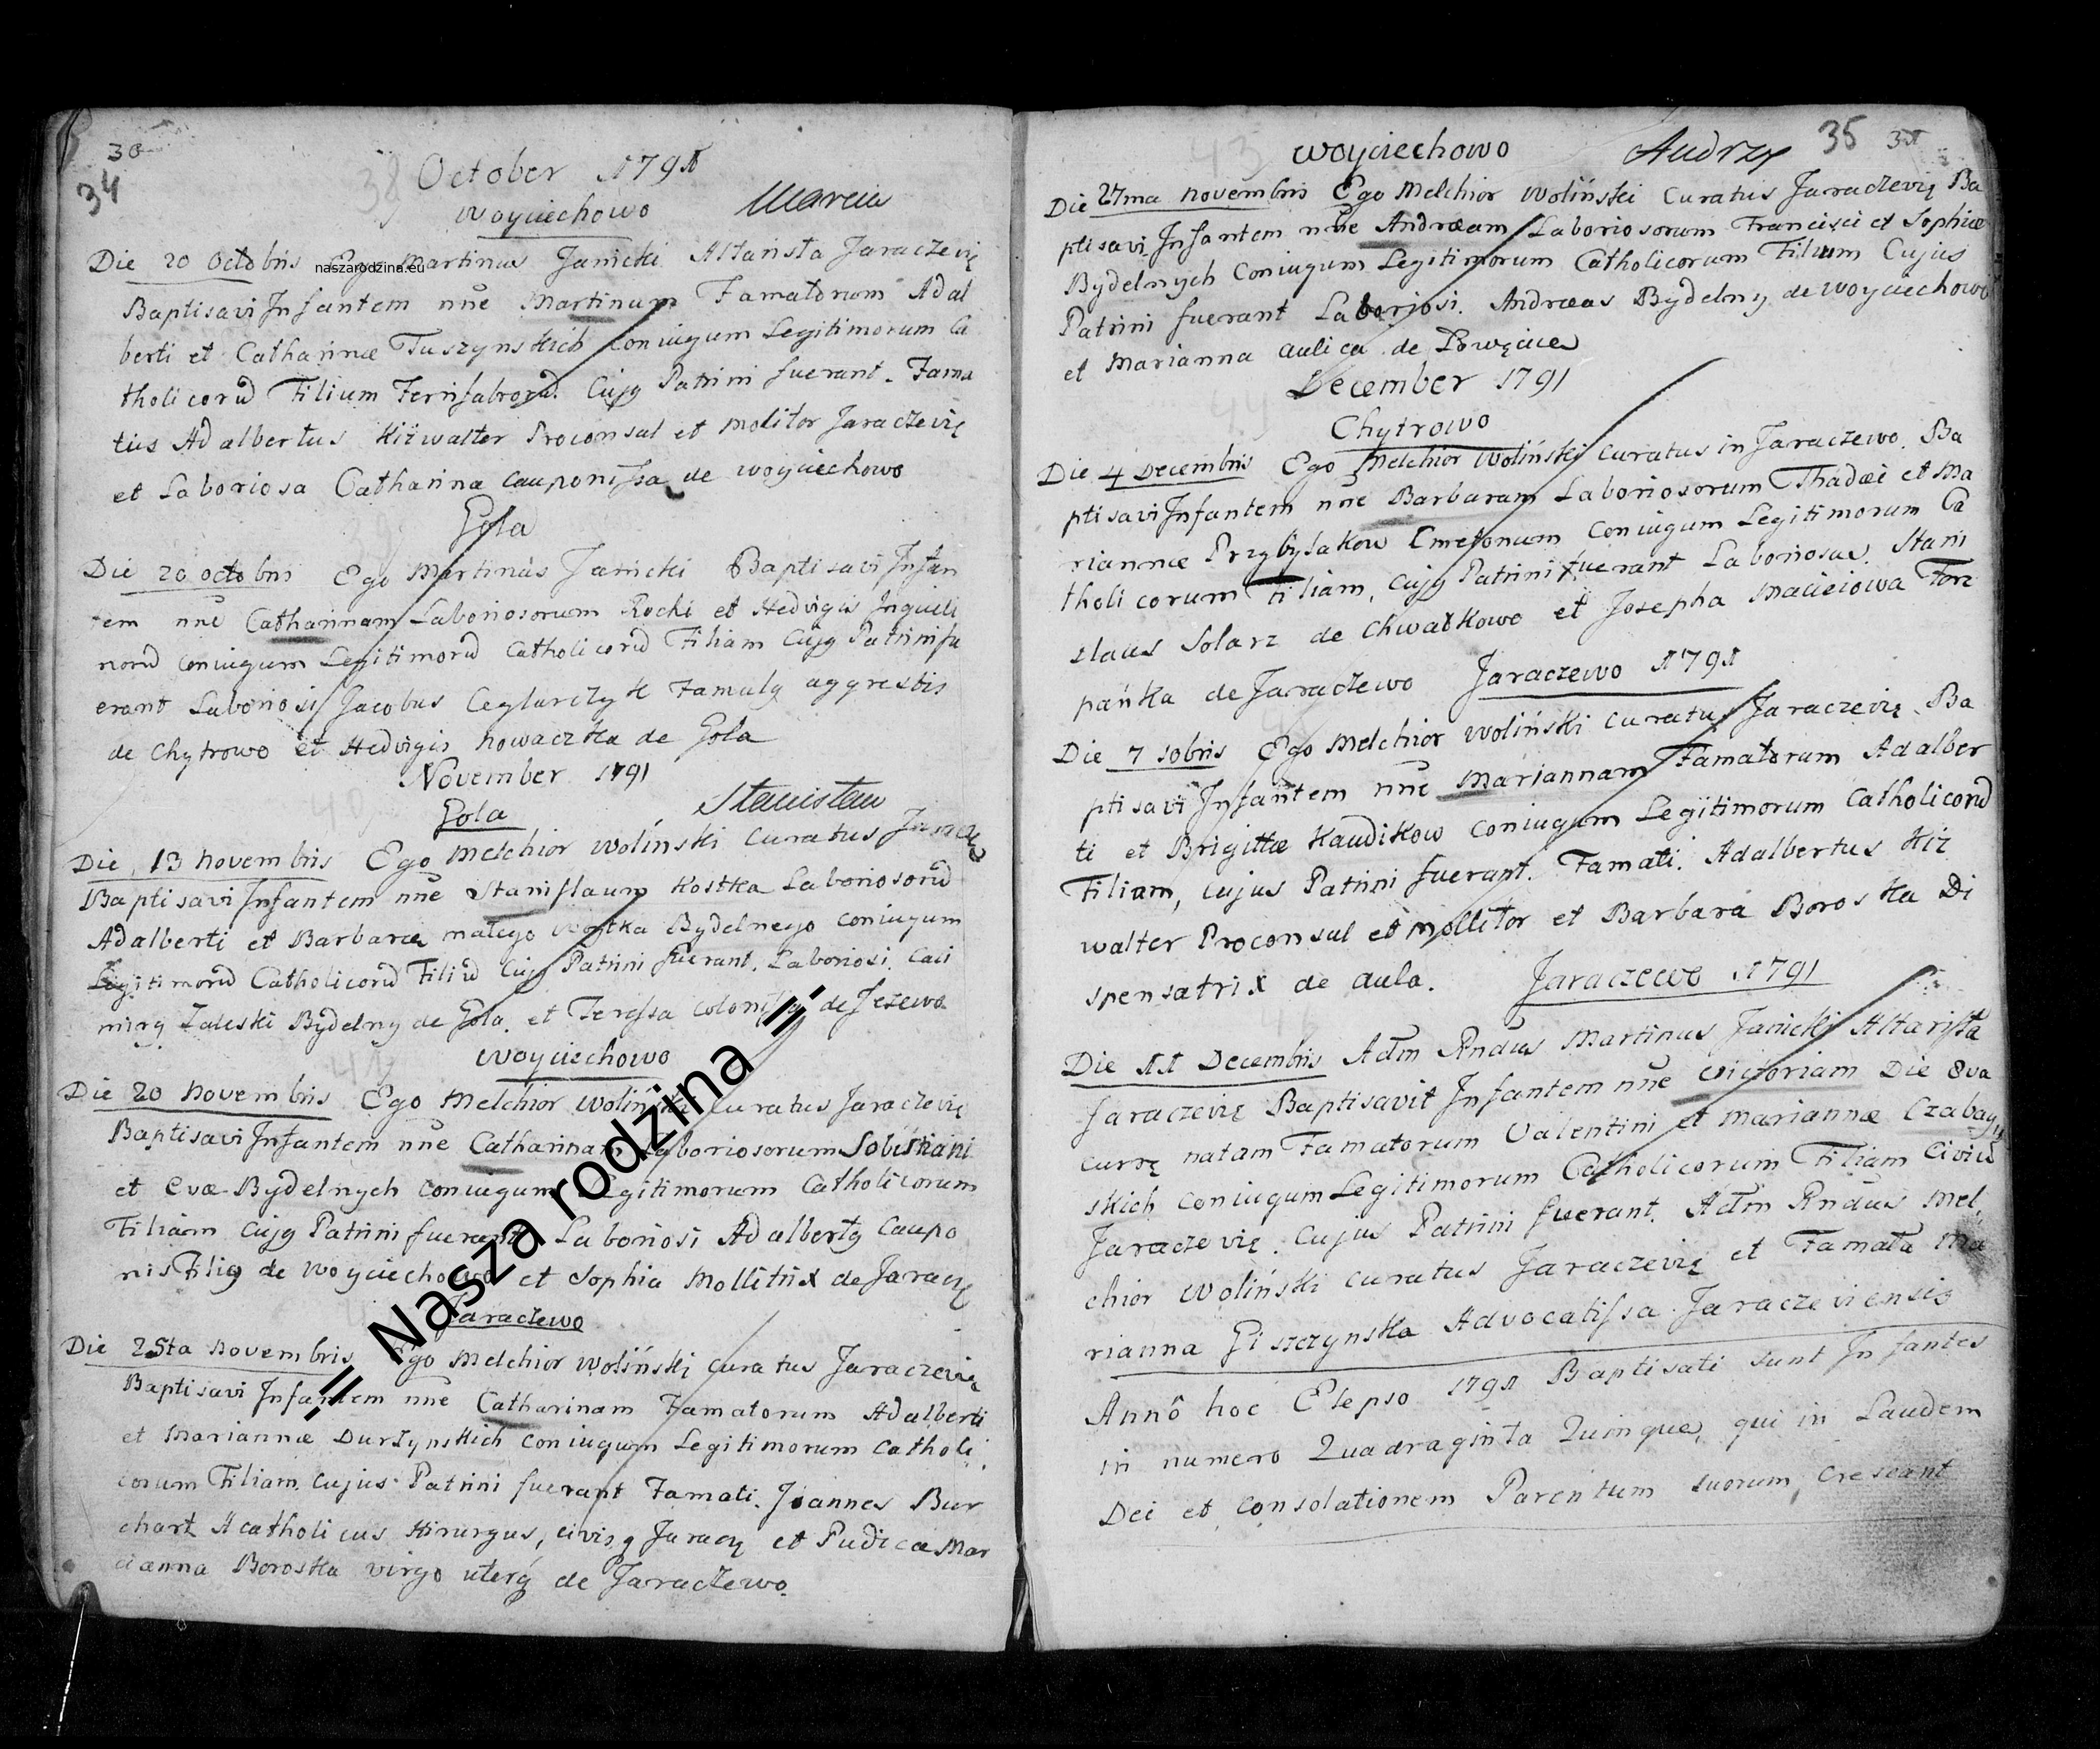 30
34
October 1791
woyciechowo Marcin
Die 20 Octobris Ego Martinus Janicki Altarista Jaraczevię
naszarodzina.eu
Baptisavi Infantem nñe Martinum Famatorum Adal
berti et Catharinæ Tuszynskich Coniugum Legitimorum Ca
tholicorũ Filium Ferrifabrorũ. Cujg Patrini fuerant. Fama
tus Adalbertus Kiżwalter Proconsul et molitor Jaraczevię
et Laboriosa Catharina Cauponissa de woyciechowo
Gola
Die 20 octobris Ego Martinus Janicki Baptisavi Infan
tem nñe Catharinam Laboriosorum Rochi et Hedvigis Inquili
norũ Coniugum Legitimorũ Catholicorũ Filiam Cujg Patrini fu
erant Laboriosi Jacobus Ceglarczyk Famulg aggrestis
de Chytrowo et Hedvigis Nowaczka de Gola
November 1791
Gola Stanisław
Die 13 Novembris Ego Melchior Woliński Curatus Jaracz
Baptisavi Infantem nñe Stanislaum Kostka Laboriosorũ
Adalberti et Barbaræ małego Kostka Bydelnego Coniugum
Legitimorũ Catholicorũ Filiũ Cujg Patrini fuerant. Laboriosi. Casi
mirg Zaleski Bydelny de Gola. et Teressa Colonissa de Jezewo
woyciechowo
Die 20 Novembris Ego Melchior Woliński Curatus Jaraczevię
Baptisavi Infantem nñe Catharinam Laboriosorum Sobistiani
et Evæ Bydelnych Coniugum Legitimorum Catholicorum
Filiam Cujg Patrini fuerant Laboriosi Adalbertg Caupo
nis Filig de woyciechowo et Sophia Mollitrix de Jaraczę
Jaraczewo
Die 25ta Novembris Ego Melchior Woliński Curatus Jaraczevię
Baptisavi Infantem nñe Catharinam Famatorum Adalberti
et Mariannæ Durzynskich Coniugum Legitimorum Catholi
corum Filiam. Cujus Patrini fuerant Famati. Joannes Bur
chart Acatholicus Hirurgus, civisq Jaracz et Pudica Mar
ianna Boroska virgo uterq de Jaraczewo.
-= Nasza rodzina =-
35 35
woyciechowo Andrzy
Die 27ma Novembris Ego Melchior Woliński Curatus Jaraczevię Ba
ptisavi Infantem nñe Andræam Laboriosorum Francisci et Sophiæ
Bydelnych Coniugum Legitimorum Catholicorum Filium Cujus
Patrini fuerant Laboriosi. Andræas Bydelny de woyciechowo
et Marianna aulica de
December 1791
Chytrowo
Die 4 Decembris Ego Melchior Woliński Curatus in Jaraczewo. Ba
ptisavi Infantem nñe Barbaram Laboriosorum Thadæi et Ma
riannæ Przybylakow Cmetonum Coniugum Legitimorum Ca
tholicorum Filiam, Cujg Patrini fuerant Laboriosae. Stani
slaus Solarz de Chwałkowo et Josepha Macieiowa Forz
pańka de Jaraczewo Jaraczewo 1791
Die 7 10bris Ego Melchior Woliński Curatus Jaraczevię Ba
ptisavi Infantem nñe Mariannam Famatorum Adalber
ti et Brigittæ Kaudikow Coniugum Legitimorum Catholicorũ
Filiam, Cujus Patrini fuerant. Famati. Adalbertus Kiż
walter Proconsul et mollitor et Barbara Boroska Di
spensatrix de aula. Jaraczewo 1791
Die 11 Decembris Adm Rndus Martinus Janicki Altarista
Jaraczevię Baptisavit Infantem nñe Victoriam Die 8va
currę natam Famatorum Valentini et Mariannæ Czabay
skich Coniugum Legitimorum Catholicorum Filiam Civiũ
Jaraczevię. Cujus Patrini fuerant. Adm Rndus Mel.
chior Woliński Curatus Jaraczevię et Famata Ma
rianna Giszczynska Advocatissa Jaraczeviensis
Annô hoc Elepso 1791 Baptisati sunt Infantes
in numero Quadraginta Quinque, qui in Laudem
Dei et consolationem Parentum suorum, Crescant